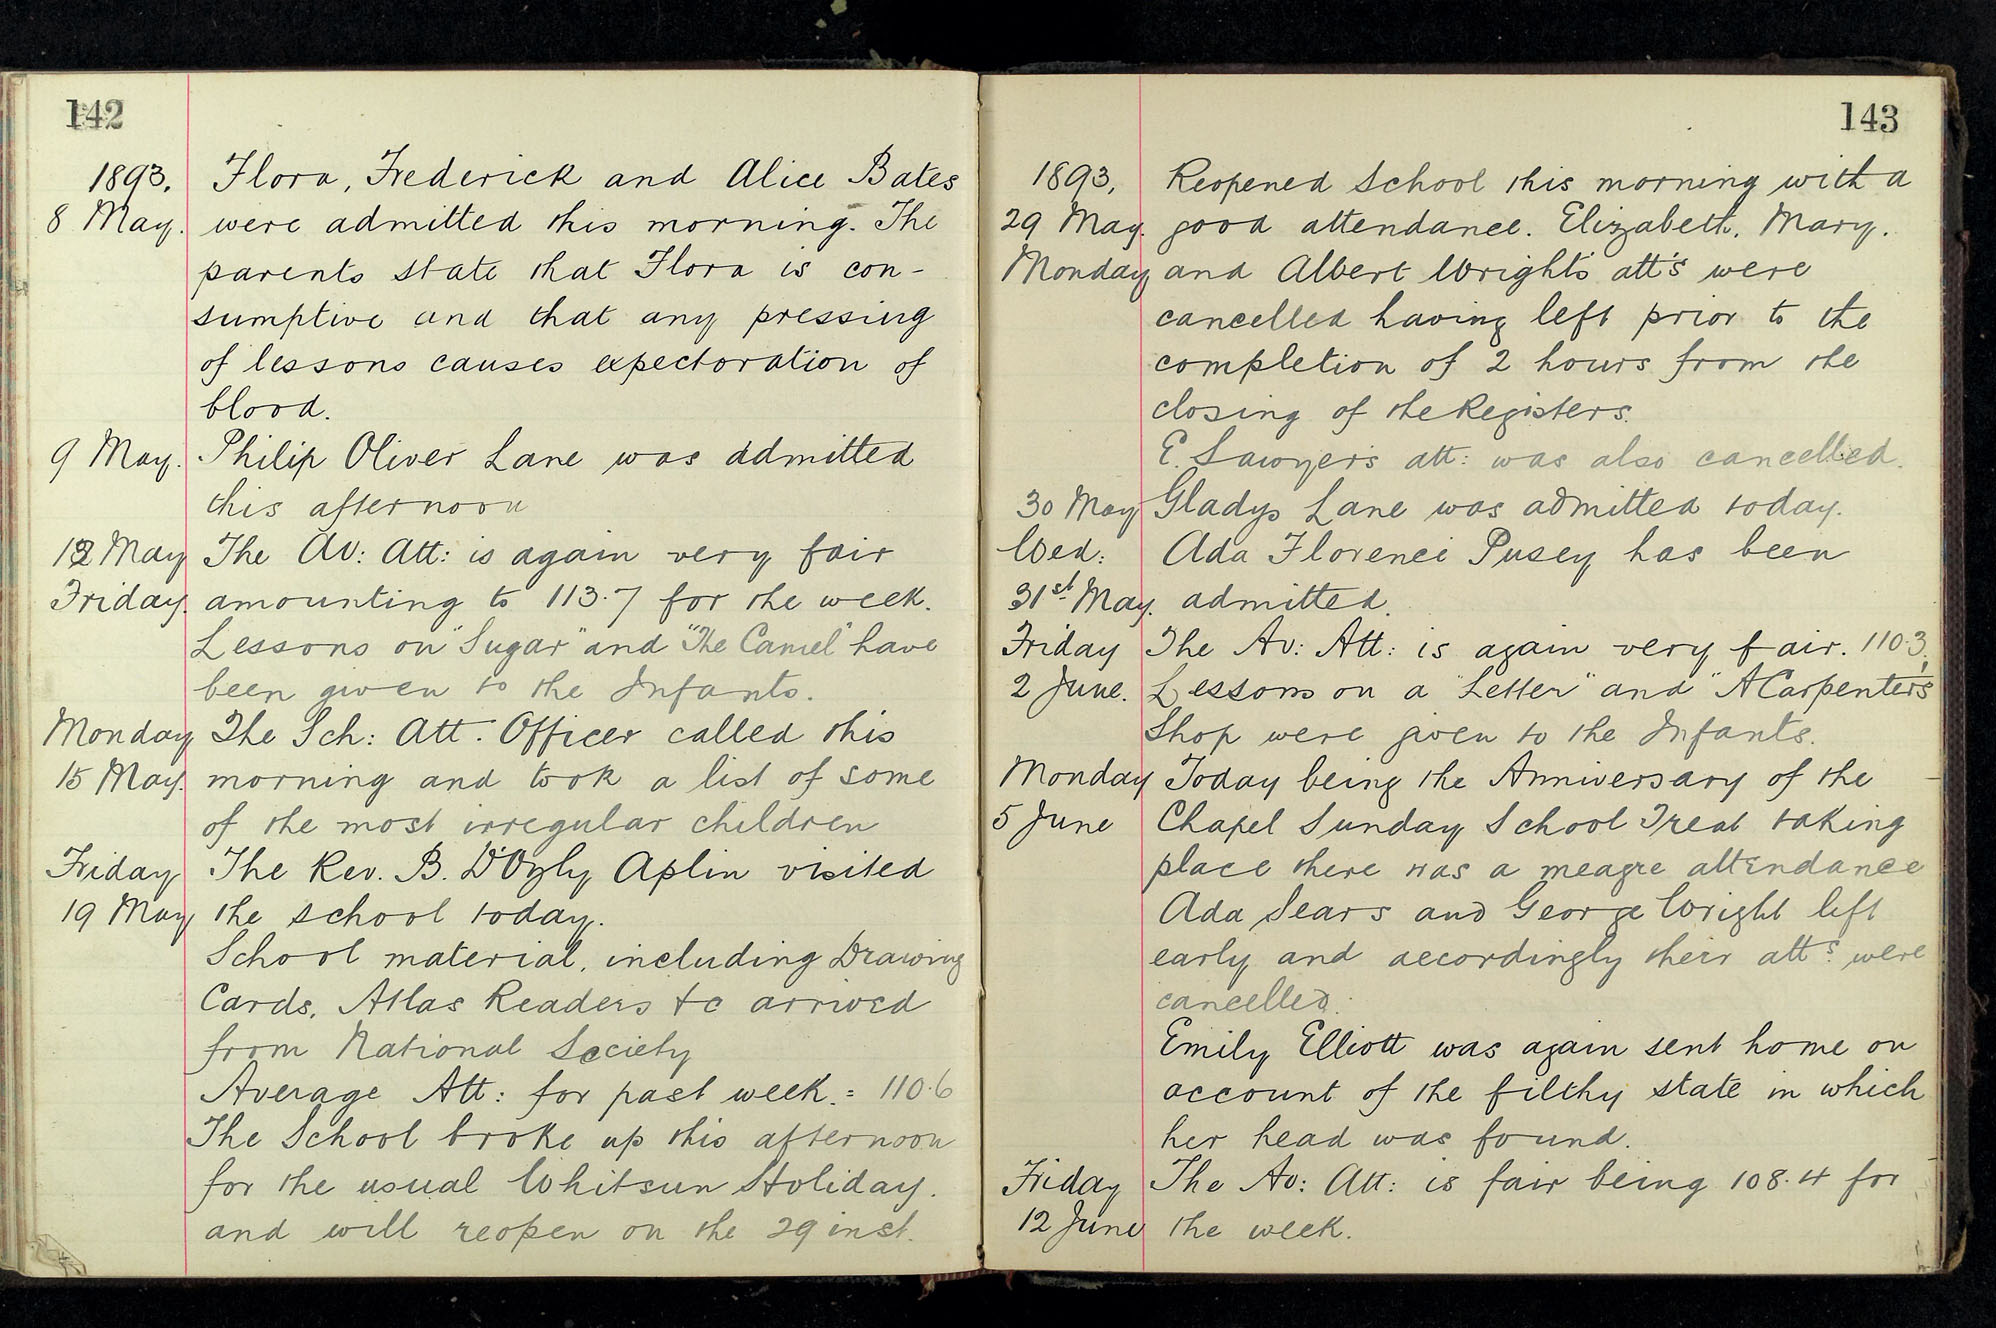 142
1893. Flora, Frederick and Alice Bates
8 May. were admitted this morning. The
parents state that Flora is con-
sumptive and that any pressing
of lessons causes expectoration of
blood.
9 May. Philip Oliver Lane was admitted
this afternoon
12 May The Av: Att: is again very fair
Friday. amounting to 113.7 for the week.
Lessons on "Sugar" and "The Camel" have
been given to the Infants.
Monday The Sch: Att. Officer called this
15 May. morning and took a list of some
of the most irregular children
Friday The Rev. B. D'Oyly Aplin visited
19 May the school today.
School material, including Drawing
Cards, Atlas Readers &c arrived
from National Society
Average Att: for past week. = 110.6
The School broke up this afternoon
for the usual Whitsun Holiday.
and will reopen on the 29 inst.
143
1893, Reopened School this morning with a
29 May. good attendance. Elizabeth, Mary.
Monday and Albert Wright's att's were
cancelled having left prior to the
completion of 2 hours from the
closing of the Registers.
E. Sawyer's att: was also cancelled.
30 May Gladys Lane was admitted today.
Wed: Ada Florence Pusey has been
31st May. admitted.
Friday The Av: Att: is again very fair. 110.3,
2 June. Lessons on a "Letter" and "A Carpenter's
Shop were given to the Infants.
Monday Today being the Anniversary of the
5 June Chapel Sunday School Treat taking
place there was a meagre attendance
Ada Sears and George Wright left
early and accordingly their atts. were
cancelled.
Emily Elliott was again sent home on
account of the filthy state in which
her head was found.
Friday The Av: Att: is fair being 108.4 for
12 June the week.